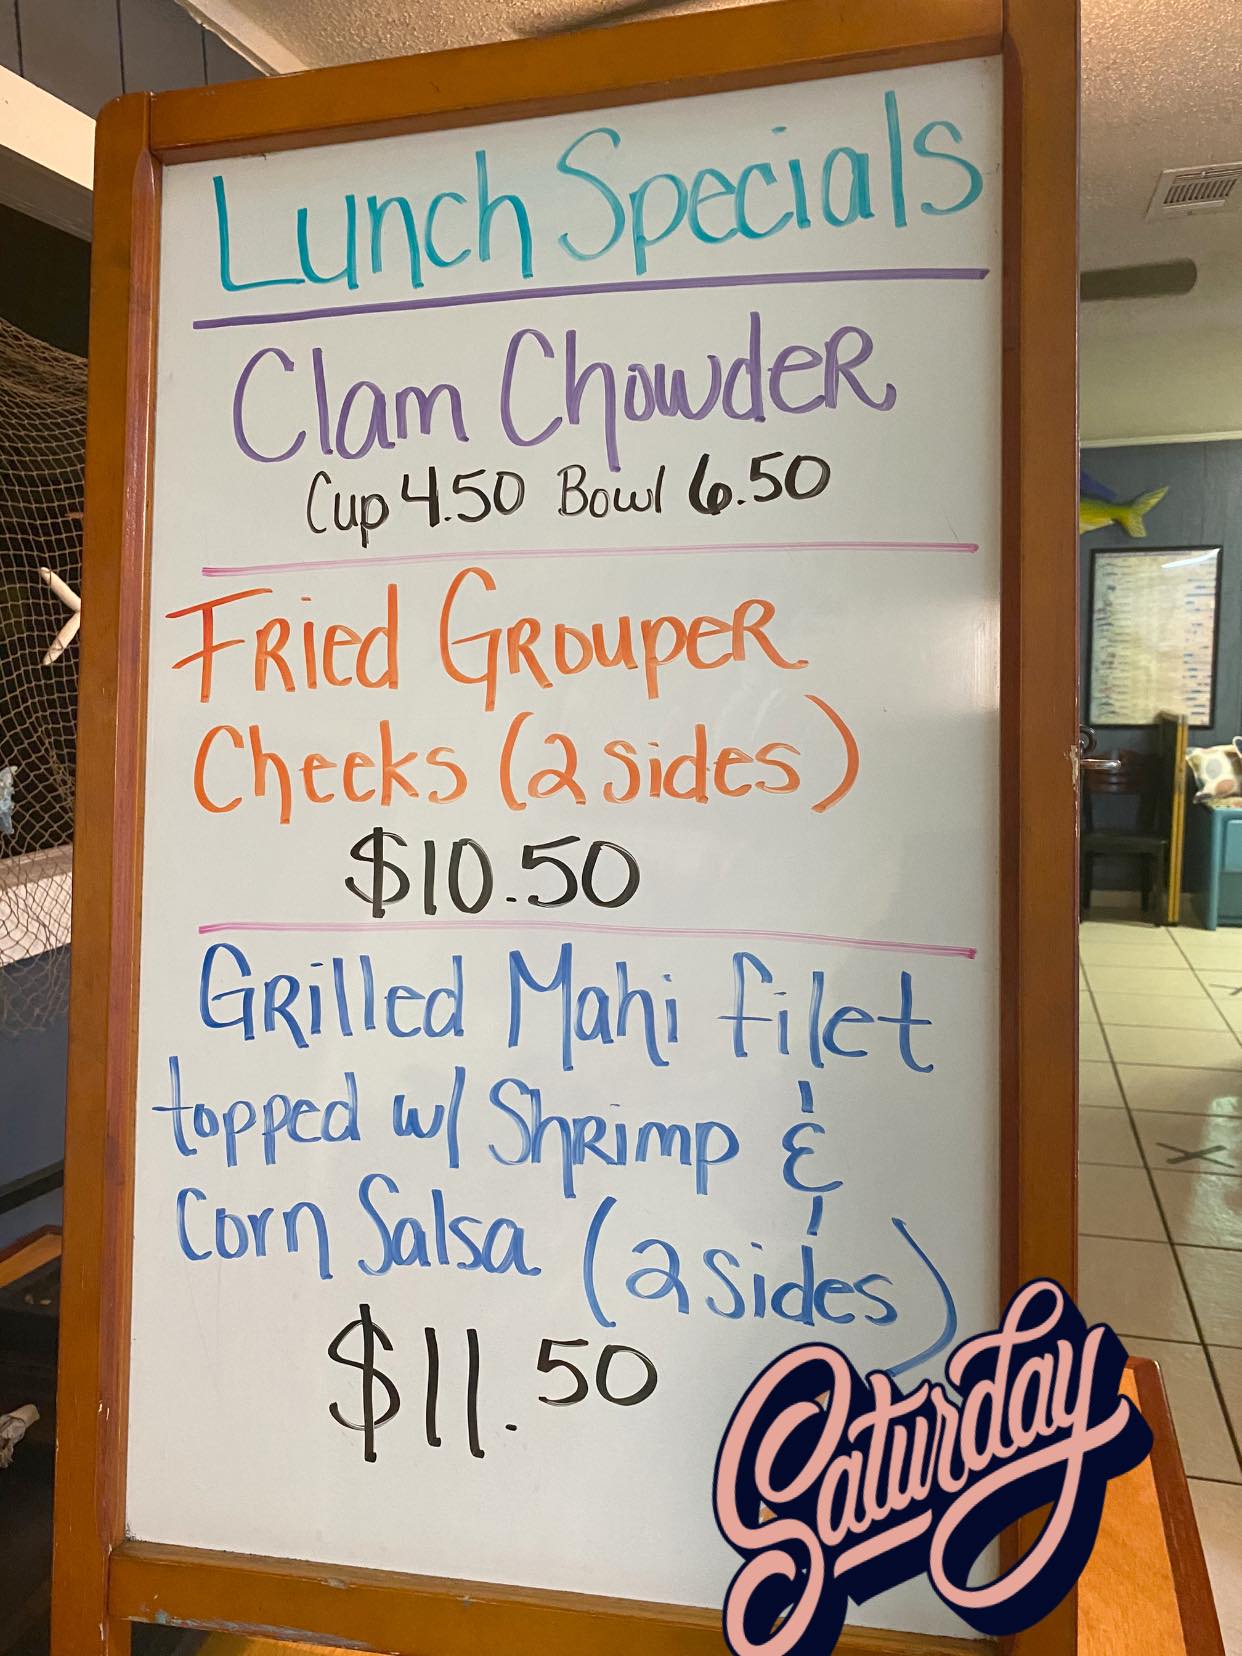 Lunch Specials
Clam Chowder
Cup 4.50 Bowl 6.50
Fried Grouper
Cheeks (2 sides)
$10.50
Grilled Mahi filet
topped w/ Shrimp &
Corn Salsa (2 sides)
$11.50
Saturday